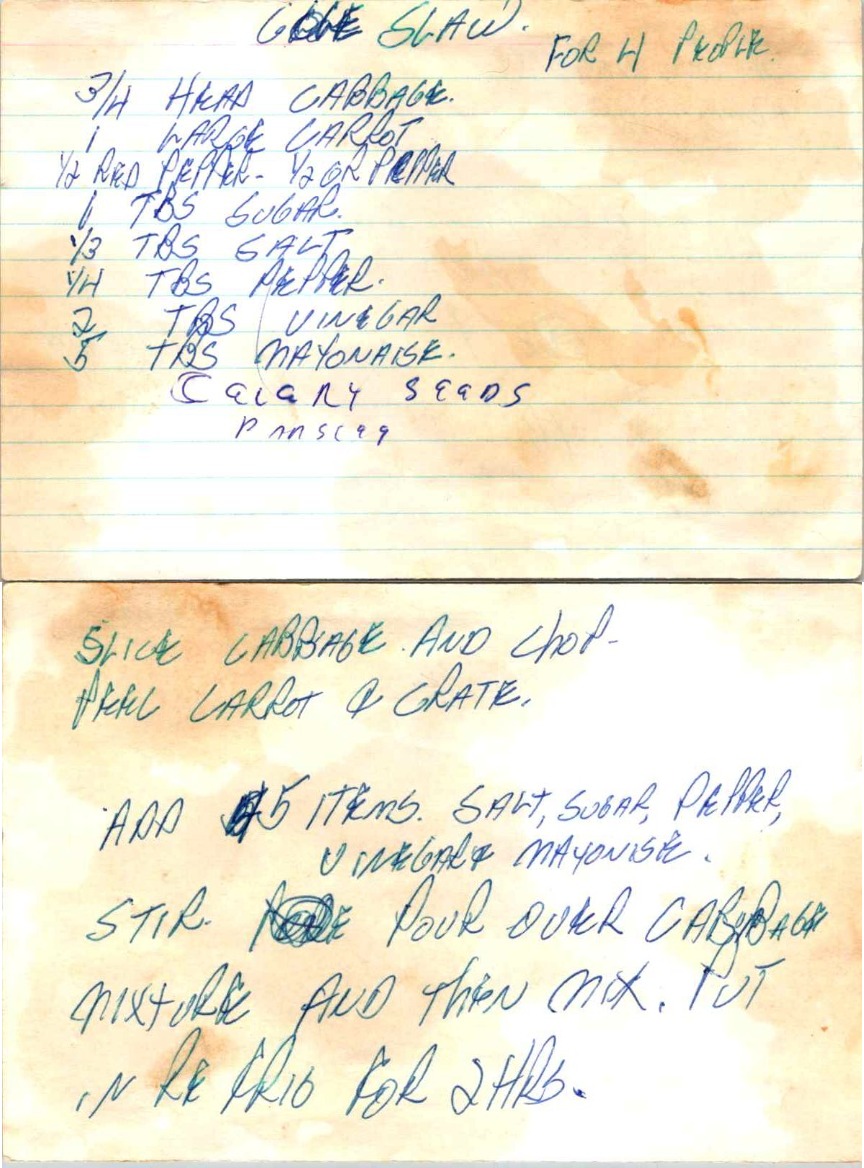 COLE SLAW.
FOR 4 PEOPLE.
3/4 HEAD CABBAGE.
1 LARGE CARROT
1/2 RED PEPPER- 1/2 GR PEPPER
1 TBS SUGAR.
1/3 TBS SALT
1/4 TBS PEPPER.
2 TBS VINEGAR
5 TBS MAYONAISE.
CALARY SEADS
SLICE CABBAGE AND CHOP-
PEEL CARROT & GRATE.
ADD 5 ITEMS. SALT, SUGAR, PEPPER,
VINEGAR & MAYONISE.
STIR. POUR OVER CABBAGE
MIXTURE AND THEN MIX. PUT
IN REFRIG FOR 2 HRS.